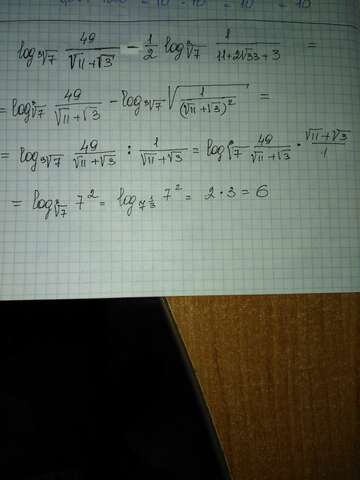 log_{∛7} 49/(√11+√3) − 1/2 log_{∛7} 1/(11+2√33+3) =
= log_{∛7} 49/(√11+√3) − log_{∛7} √(1/(√11+√3)²) =
= log_{∛7} 49/(√11+√3) : 1/(√11+√3) = log_{∛7} 49/(√11+√3) · (√11+√3)/1
= log_{∛7} 7² = log_{7^{1/3}} 7² = 2·3 = 6